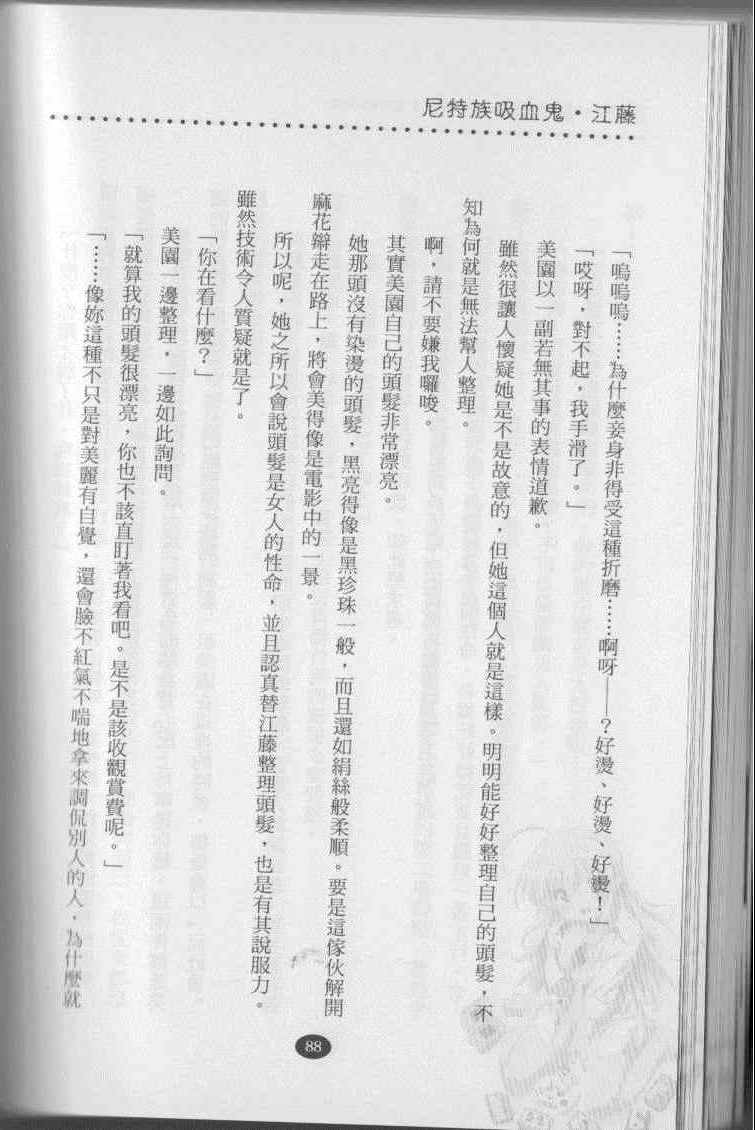 尼特族吸血鬼・江藤
「嗚嗚嗚……為什麼妾身非得受這種折磨……啊呀——？好燙、好燙、好燙！」
「哎呀，對不起，我手滑了。」
美園以一副若無其事的表情道歉。
雖然很讓人懷疑她是不是故意的，但她這個人就是這樣。明明能好好整理自己的頭髮，不
知為何就是無法幫人整理。
啊，請不要嫌我囉唆。
其實美園自己的頭髮非常漂亮。
她那頭沒有染燙的頭髮，黑亮得像是黑珍珠一般，而且還如絹絲般柔順。要是這傢伙解開
麻花辮走在路上，將會美得像是電影中的一景。
所以呢，她之所以會說頭髮是女人的性命，並且認真替江藤整理頭髮，也是有其說服力。
雖然技術令人質疑就是了。
「你在看什麼？」
美園一邊整理，一邊如此詢問。
「就算我的頭髮很漂亮，你也不該直盯著我看吧。是不是該收觀賞費呢。」
「……像妳這種不只是對美麗有自覺，還會臉不紅氣不喘地拿來調侃別人的人，為什麼就
88